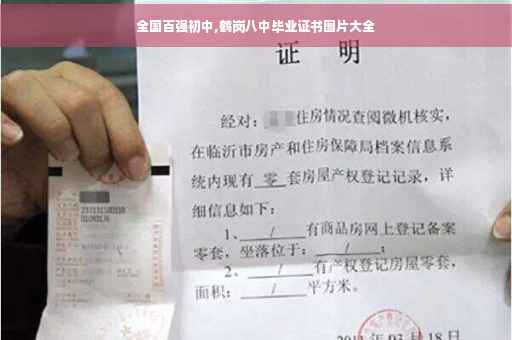 全国百强初中,鹤岗八中毕业证书图片大全
证 明
经对： 住房情况查阅微机核实，
在临沂市房产和住房保障局档案信息系
统内现有 零 套房屋产权登记记录，详
细信息如下：
1、 / 有商品房网上登记备案
零套，坐落位于： / ；
2、 / 有产权登记房屋零套，
面积： / 平方米。
03月18日